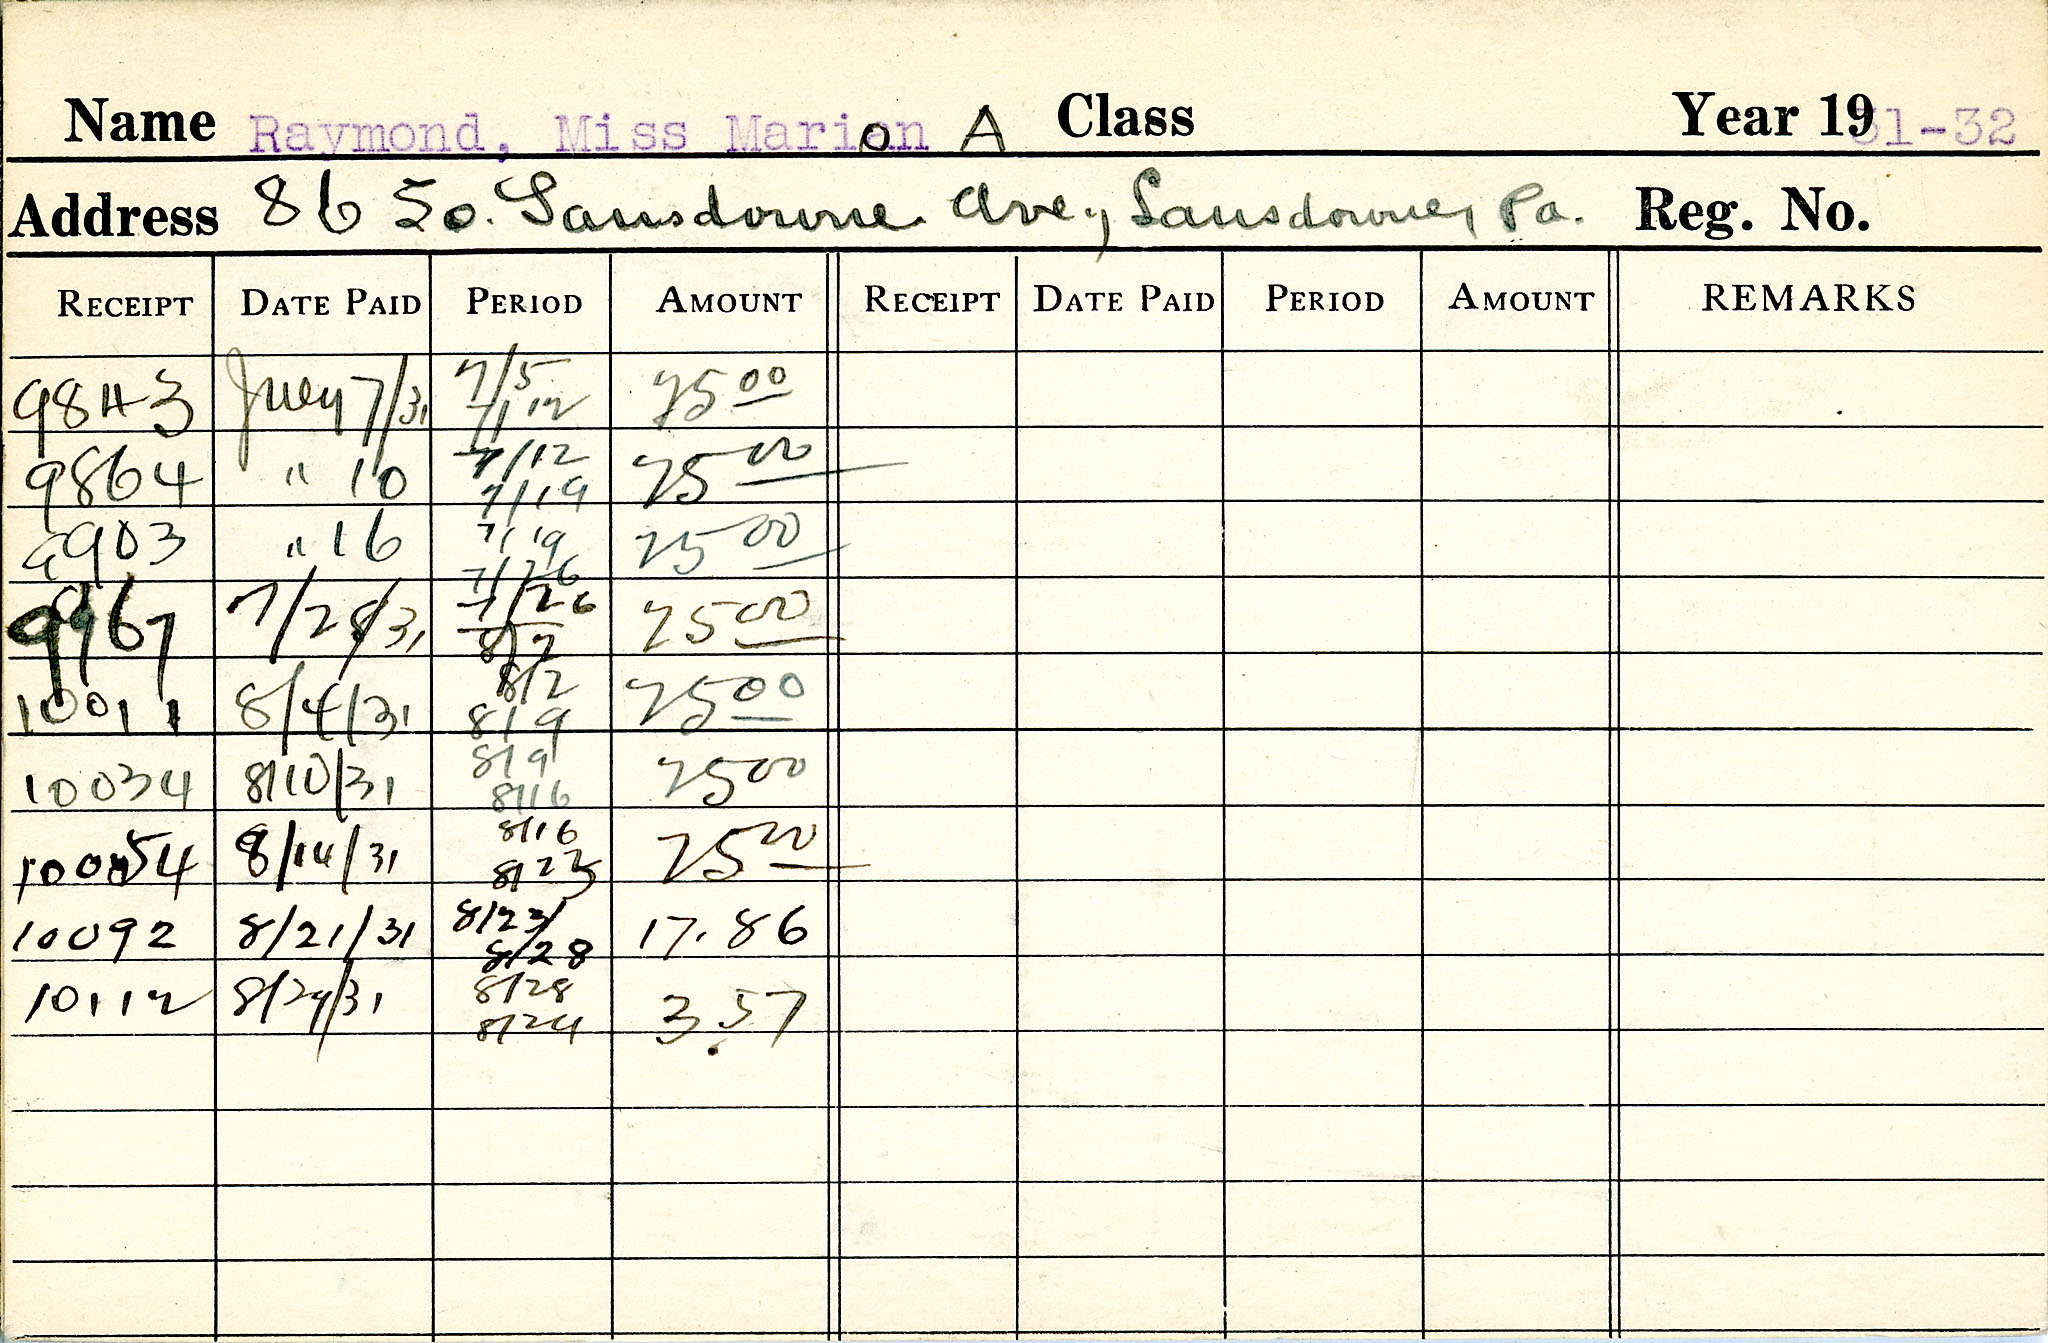 Name Raymond, Miss Marion A Class Year 1931-32
Address 86 So. Lansdowne Ave, Lansdowne, Pa. Reg. No.
RECEIPT DATE PAID PERIOD AMOUNT RECEIPT DATE PAID PERIOD AMOUNT REMARKS
9843 July 7/31 7/5 7/12 25 00
9864 " 10 7/12 7/19 25 00
9903 " 16 7/19 7/26 25 00
9967 7/28/31 7/26 8/2 25 00
10011 8/4/31 8/2 8/9 25 00
10034 8/10/31 8/9 8/16 25 00
10054 8/14/31 8/16 8/23 25 00
10092 8/21/31 8/23/ 8/28 17.86
10112 8/29/31 8/28 8/29 3.57